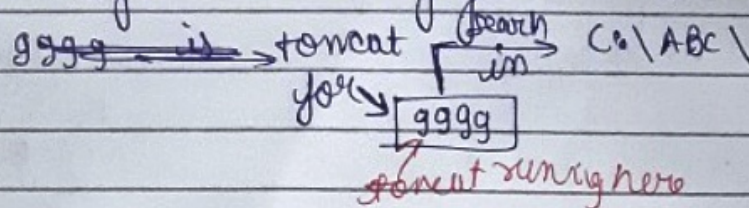 gggg is → tomcat search in C:\ABC\
for gggg
tomcat runing here